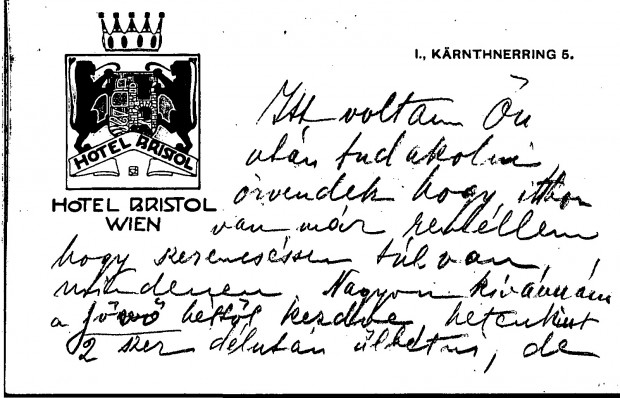 I., KÄRNTHNERRING 5.
HOTEL BRISTOL
HOTEL BRISTOL
WIEN
Itt voltam Ön
után tudakolni
örvendek hogy itthon
van már reméllem
hogy szerencséssen túl van
mindenen Nagyon kívánnám
a jövő héttől kezdve hetenkint
2 szer délután ülhetni, de